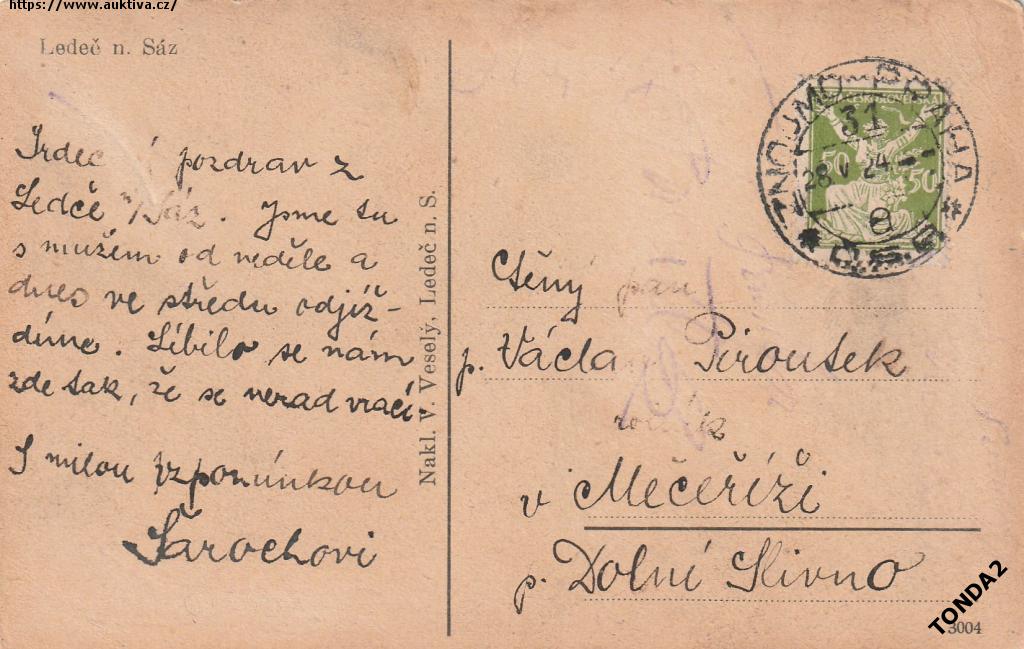 https://www.auktiva.cz/
Ledeč n. Sáz
Srdečný pozdrav z
Ledče n/Sáz. Jsme tu
s mužem od neděle a
dnes ve středu odjíž-
díme. Líbilo se nám
zde tak, že se nerad vrací.
S milou vzpomínkou
Šarochovi
Nakl. V. Veselý, Ledeč n. S.
ZNOJMO PRAHA
31
28 V 24
ČESKOSLOVENSKÁ
50 50
Ctěný pan
p. Václav Piroutek
rolník
v Mečeříži
p. Dolní Slivno
3004
TONDA2